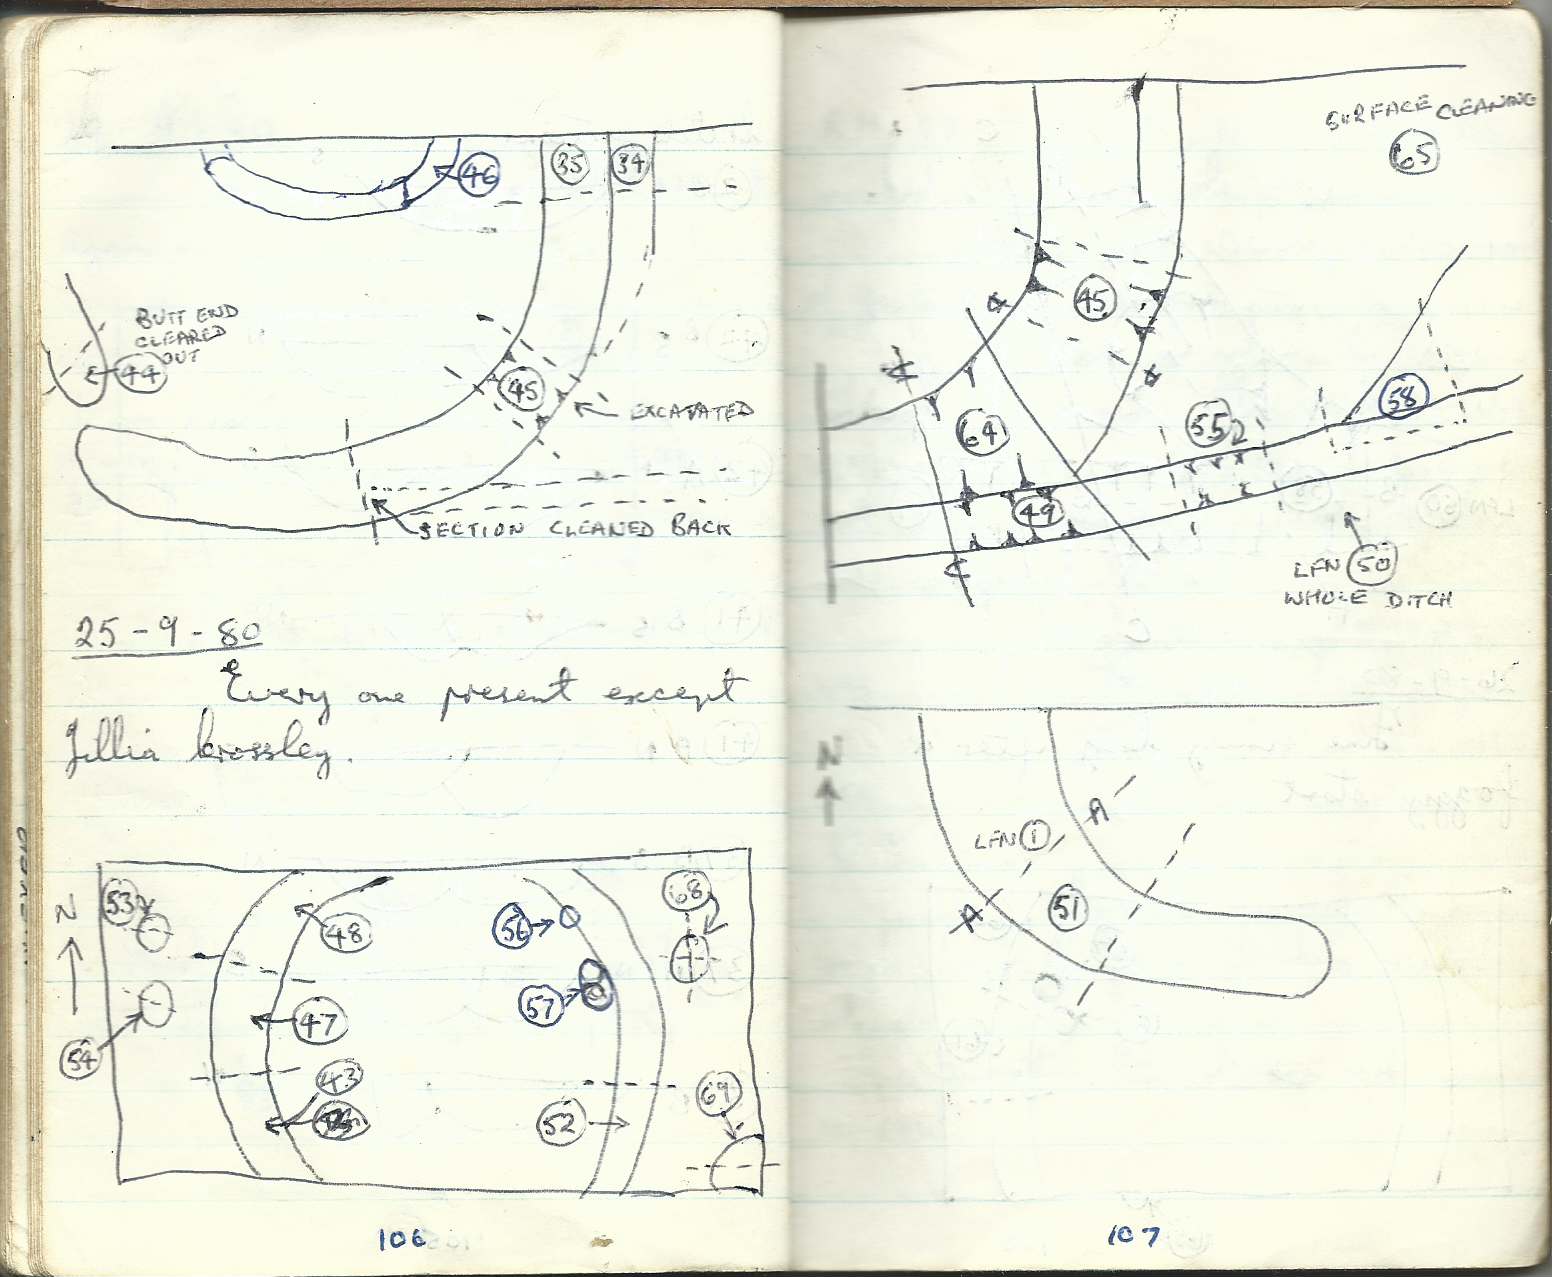 46
35
34
BUTT END
CLEARED
OUT
44
45
EXCAVATED
SECTION CLEANED BACK
25-9-80
Every one present except
Jillia Crossley.
N
53
48
56
68
57
47
54
43
52
69
106
SURFACE CLEANING
65
45
64
55
58
49
LFN 50
WHOLE DITCH
N
LFN 1
A
51
A
107